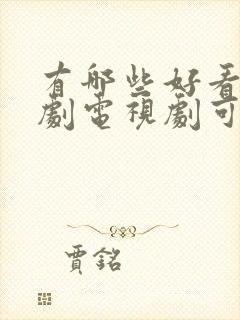 有哪些好看
劇電視劇可
賈銘